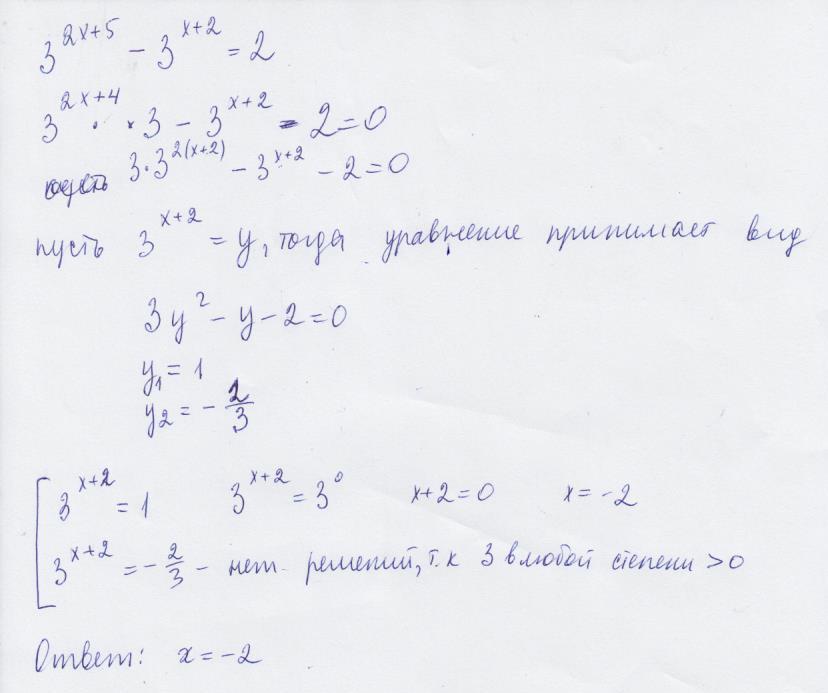 3^{2x+5} - 3^{x+2} = 2
3^{2x+4} · 3 - 3^{x+2} - 2 = 0
3·3^{2(x+2)} - 3^{x+2} - 2 = 0
пусть 3^{x+2} = y, тогда уравнение принимает вид
3y² - y - 2 = 0
y₁ = 1
y₂ = -2/3
[ 3^{x+2} = 1 3^{x+2} = 3⁰ x+2=0 x=-2
3^{x+2} = -2/3 - нет решений, т.к 3 в любой степени >0
Ответ: x = -2